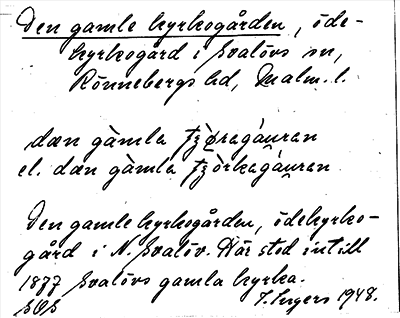 Den gamle kyrkogården, öde-
kyrkogård i Svalövs sn,
Rönnebergs hd, Malm. l.
dæn gàmla
el. dæn gàmla
Den gamle kyrkogården, ödekyrko-
gård i N. Svalöv. Här stod intill
1877 Svalövs gamla kyrka.
I. Ingers 1948.